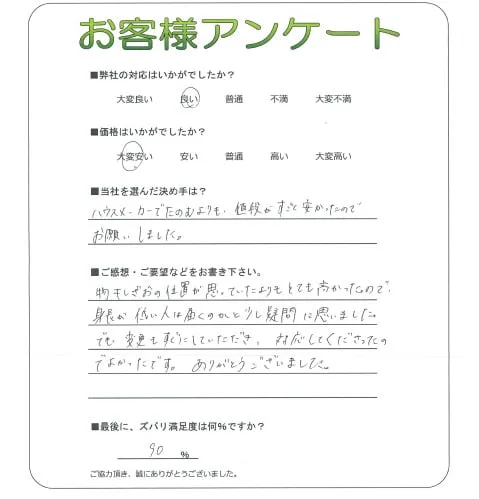 お客様アンケート
■弊社の対応はいかがでしたか？
大変良い 良い 普通 不満 大変不満
■価格はいかがでしたか？
大変安い 安い 普通 高い 大変高い
■当社を選んだ決め手は？
ハウスメーカーでたのむよりも、値段がすごく安かったので
お願いしました。
■ご感想・ご要望などをお書き下さい。
物干しざおの位置が思っていたよりもとても高かったので、
身長が低い人は届くのかと少し疑問に思いました。
でも変更もすぐにしていただき、対応してくださったの
でよかったです。ありがとうございました。
■最後に、ズバリ満足度は何％ですか？
90 %
ご協力頂き、誠にありがとうございました。